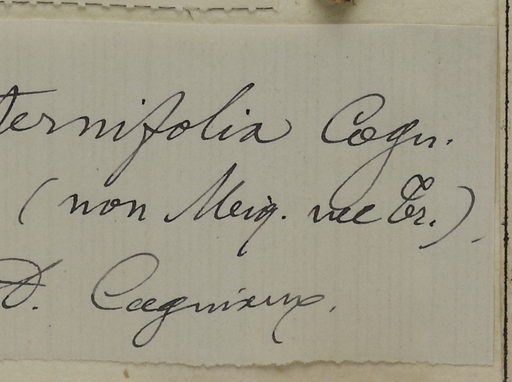 ternifolia Cogn.
(non Meiq. nec Tr.).
D. Cogniaux.